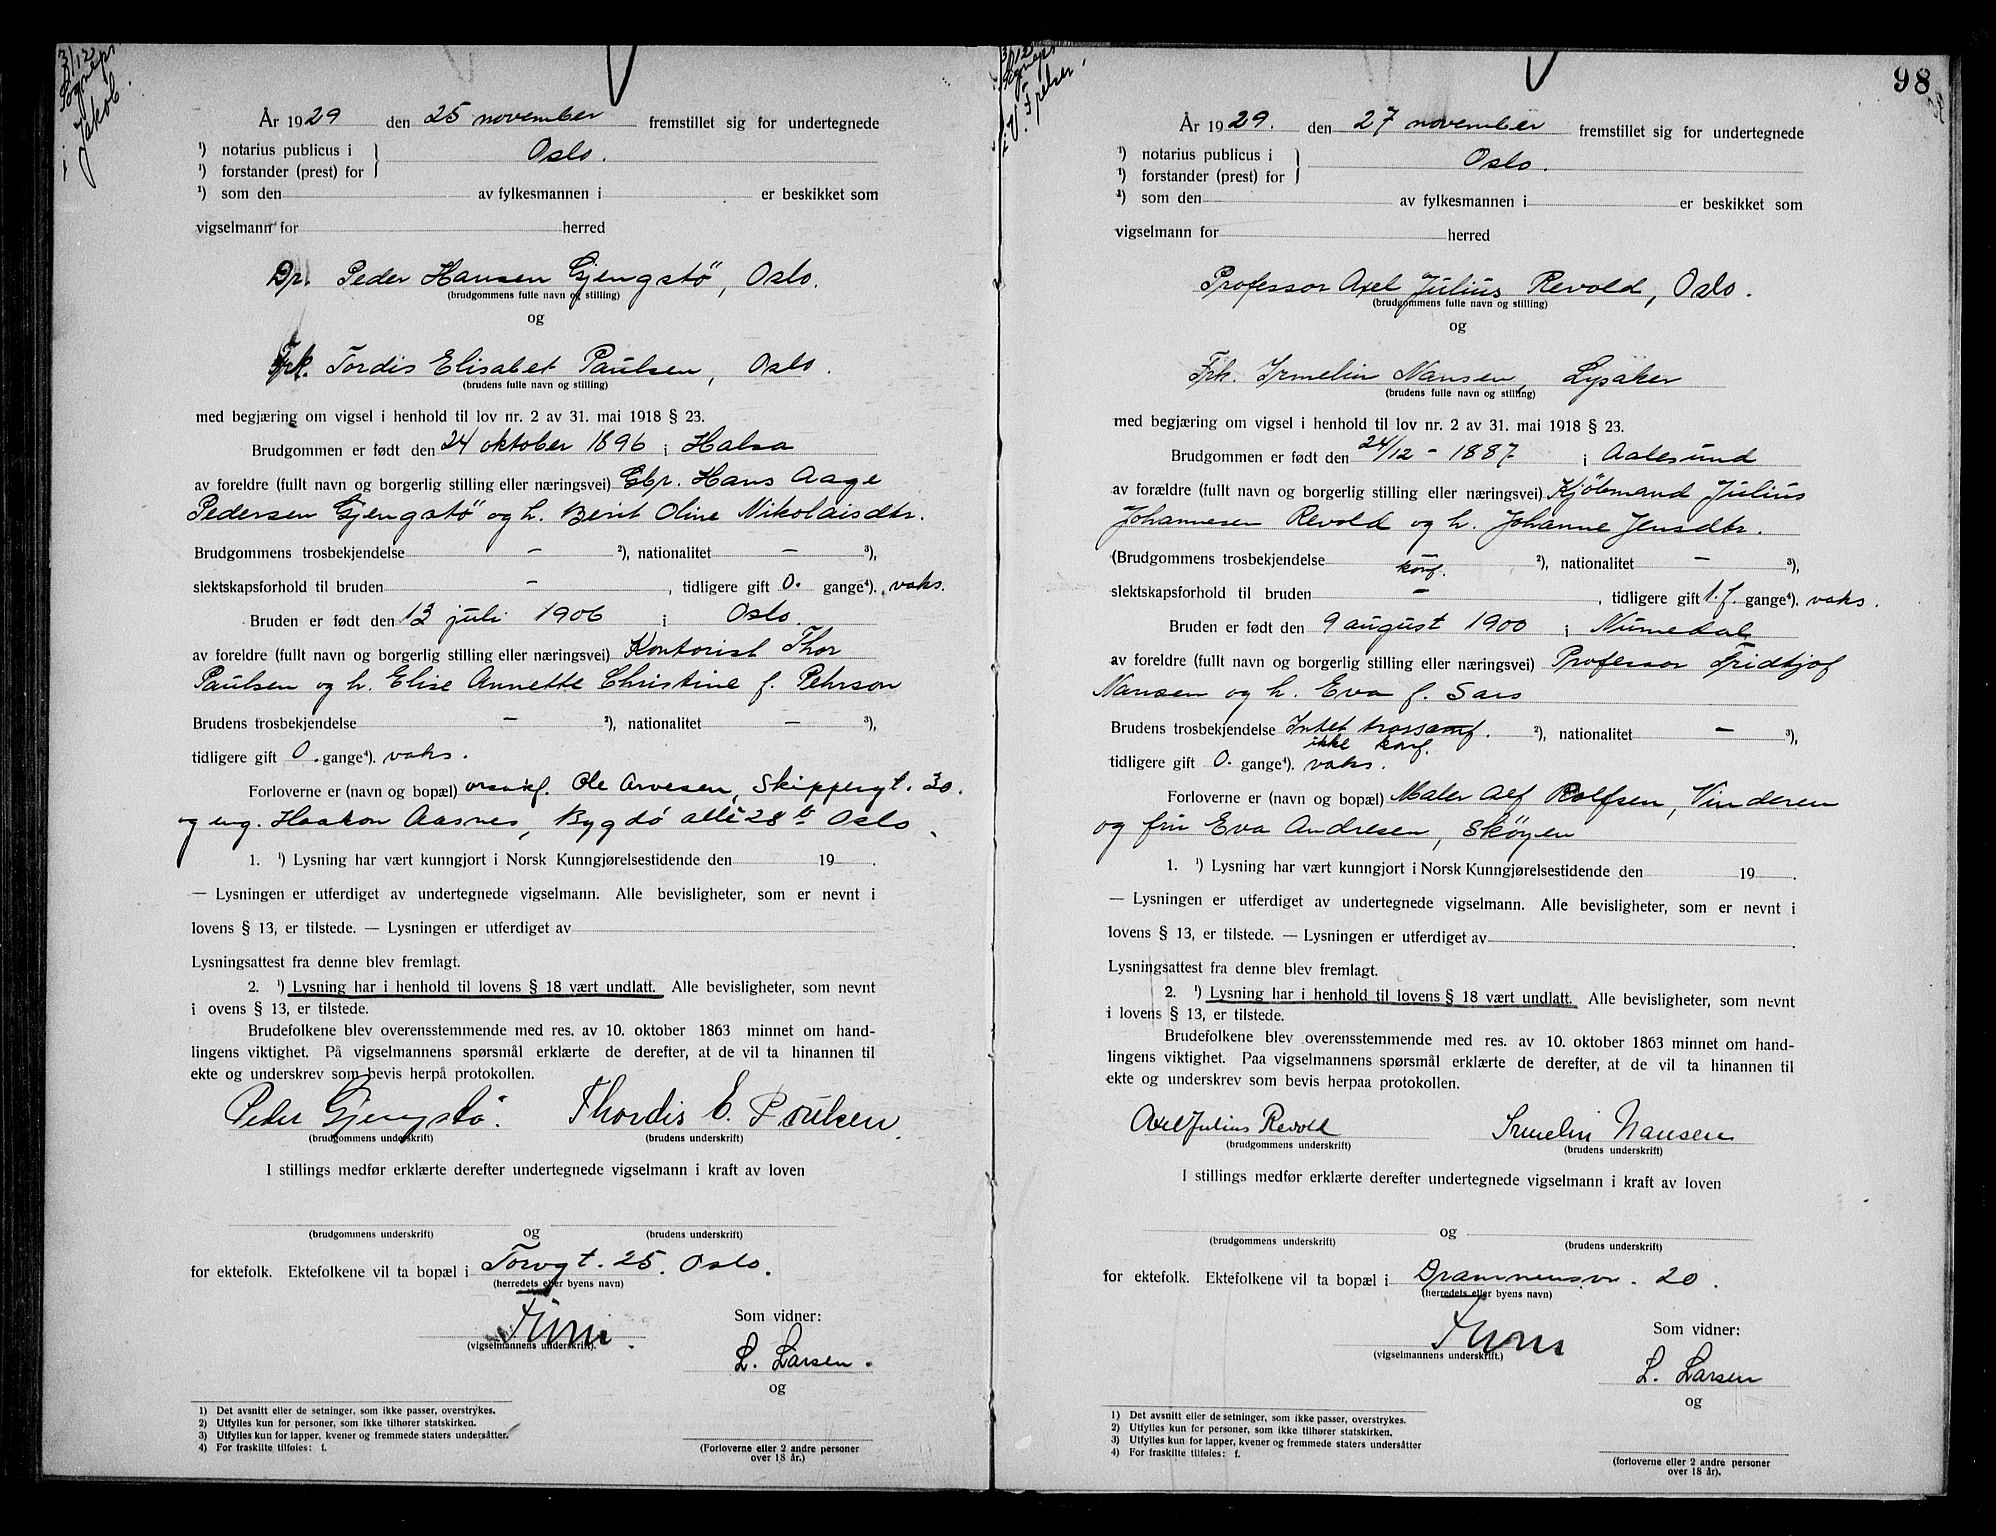 3/12
Sogneps
i Jakob.
År 1929 den 25 november fremstillet sig for undertegnede
¹) notarius publicus i } Oslo.
¹) forstander (prest) for
¹) som den av fylkesmannen i er beskikket som
vigselmann for herred
Dr. Peder Hansen Gjengstö, Oslo.
(brudgommens fulle navn og stilling)
og
Frk. Tordis Elisabet Paulsen, Oslo.
(brudens fulle navn og stilling)
med begjæring om vigsel i henhold til lov nr. 2 av 31. mai 1918 § 23.
Brudgommen er født den 24 oktober 1896 i Halsa
av foreldre (fullt navn og borgerlig stilling eller næringsvei) Gbr. Hans Aage
Pedersen Gjengstö og h. Berit Oline Nikolaisdtr.
Brudgommens trosbekjendelse – ²), nationalitet – ³),
slektskapsforhold til bruden – , tidligere gift 0. gange⁴). vaks.
Bruden er født den 13 juli 1906 i Oslo.
av foreldre (fullt navn og borgerlig stilling eller næringsvei) Kontorist Thor
Paulsen og h. Elise Annette Christine f. Pehrson
Brudens trosbekjendelse – ²), nationalitet – ³),
tidligere gift 0. gange⁴). vaks.
Forloverne er (navn og bopæl) orsakf. Ole Arvesen, Skippergt. 30.
og eng. Haakon Aasnes, Bygdö allé 28 b Oslo.
1. ¹) Lysning har vært kunngjort i Norsk Kunngjørelsestidende den 19 .
— Lysningen er utferdiget av undertegnede vigselmann. Alle bevisligheter, som er nevnt i
lovens § 13, er tilstede. — Lysningen er utferdiget av
Lysningsattest fra denne blev fremlagt.
2. ¹) Lysning har i henhold til lovens § 18 vært undlatt. Alle bevisligheter, som nevnt
i ovens § 13, er tilstede.
Brudefolkene blev overensstemmende med res. av 10. oktober 1863 minnet om hand-
lingens viktighet. På vigselmannens spørsmål erklærte de derefter, at de vil ta hinannen til
ekte og underskrev som bevis herpå protokollen.
Peder Gjengstö. Thordis E. Paulsen.
(brudgommens underskrift) (brudens underskrift)
I stillings medfør erklærte derefter undertegnede vigselmann i kraft av loven
og
(brudgommens underskrift) (brudens underskrift)
for ektefolk. Ektefolkene vil ta bopæl i Torvgt. 25. Oslo.
(herredets eller byens navn)
Som vidner:
(vigselmannens underskrift).
L. Larsen.
og
1) Det avsnitt eller de setninger, som ikke passer, overstrykes.
2) Utfylles kun for personer, som ikke tilhører statskirken.
3) Utfylles kun for lapper, kvener og fremmede staters undersåtter.
4) For fraskilte tilføies: f.
(Forloverne eller 2 andre personer
over 18 år.)
98
3/12
Sogneps
i V. Frelser.
År 1929. den 27 november fremstillet sig for undertegnede
¹) notarius publicus i } Oslo.
¹) forstander (prest) for
¹) som den av fylkesmannen i er beskikket som
vigselmann for herred
Professor Axel Julius Revold, Oslo.
(brudgommens fulle navn og stilling)
og
Frk. Irmelin Nansen, Lysaker
(brudens fulle navn og stilling)
med begjæring om vigsel i henhold til lov nr. 2 av 31. mai 1918 § 23.
Brudgommen er født den 24/12 – 1887 i Aalesund
av forældre (fullt navn og borgerlig stilling eller næringsvei) Kjöbmand Julius
Johannesen Revold og h. Johanne Jensdtr.
(Brudgommens trosbekjendelse – konf. ²), nationalitet – ³),
slektskapsforhold til bruden – , tidligere gift 1. f. gange⁴). vaks.
Bruden er født den 9 august 1900 i Numedal
av foreldre (fullt navn og borgerlig stilling eller næringsvei) Professor Fridtjof
Nansen og h. Eva f. Sars
Brudens trosbekjendelse Intet trossamf. ²), nationalitet – ³),
ikke konf.
tidligere gift 0. gange⁴). vaks.
Forloverne er (navn og bopæl) Maler Alf Rolfsen, Vinderen
og fru Eva Andresen, Sköyen
1. ¹) Lysning har vært kunngjort i Norsk Kunngjørelsestidende den 19 .
— Lysningen er utferdiget av undertegnede vigselmann. Alle bevisligheter, som er nevnt i
lovens § 13, er tilstede. — Lysningen er utferdiget av .
Lysningsattest fra denne blev fremlagt.
2. ¹) Lysning har i henhold til lovens § 18 vært undlatt. Alle bevisligheter, som nevnt
i lovens § 13, er tilstede.
Brudefolkene blev overensstemmende med res. av 10. oktober 1863 minnet om hand-
lingens viktighet. Paa vigselmannens spørsmål erklærte de derefter, at de vil ta hinannen til
ekte og underskrev som bevis herpaa protokollen.
Axel Julius Revold Irmelin Nansen
(brudgommens underskrift) (brudens underskrift)
I stillings medfør erklærte derefter undertegnede vigselmann i kraft av loven
og
(brudgommens underskrift) (brudens underskrift)
for ektefolk. Ektefolkene vil ta bopæl i Drammensvn. 20.
(herredets eller byens navn)
Som vidner:
(vigselmannens underskrift.)
L. Larsen
og
1) Det avsnitt eller de setninger, som ikke passer, overstrykes.
2) Utfylles kun for personer, som ikke tilhører statskirken.
3) Utfylles kun for lapper, kvener og fremmede staters undersåtter
4) For fraskilte tilføies: f.
(forloverne eller 2 andre personer
over 18 år).